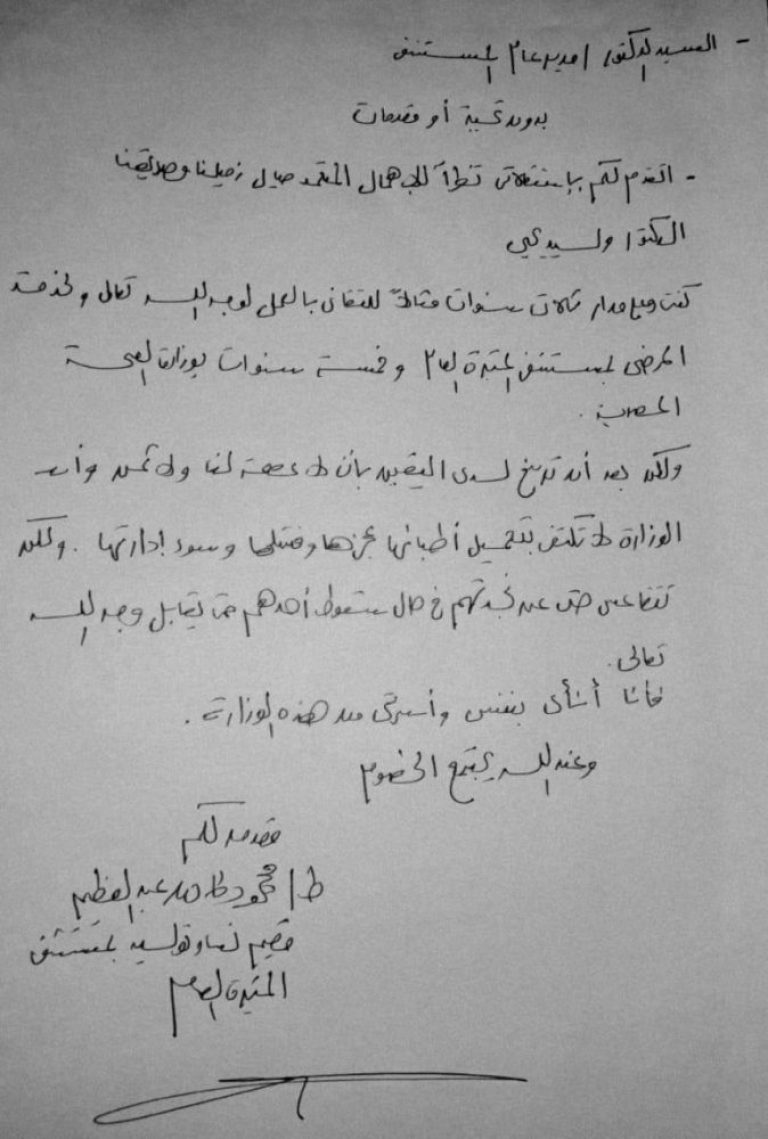 - السيد الدكتور / مدير عام المستشفى
بدون تحية أو مقدمات
- اتقدم لكم بإستقالتى نظراً للإهمال المتعمد حيال زميلنا وصديقنا
الدكتور وليد يحيي
كنت وعلى مدار ثلاث سنوات مثالاً للتفانى بالعمل لوجه الله تعالى ولخدمة
المرضى بمستشفى المنيرة العام و خمسة سنوات بوزارة الصحة
المصرية .
ولكن بعد أن ترسخ لدى اليقين بأن لا عصمة لنا ولا ثمن وأن
الوزارة لا تكتفى بتحميل أطبائها عجزها وفشلها وسوء إدارتها . ولكن
تتقاعس حتى عن نجدتهم فى حال سقوط أحدهم حتى يقابل وجه الله
تعالى .
فأنا أنأى بنفسى وأستبرئ من هذه الوزارة .
وعند الله تجتمع الخصوم
مقدمه لكم
ط / محمود طارق عبد العظيم
مقيم نسا وتوليد بمستشفى
المنيرة العام